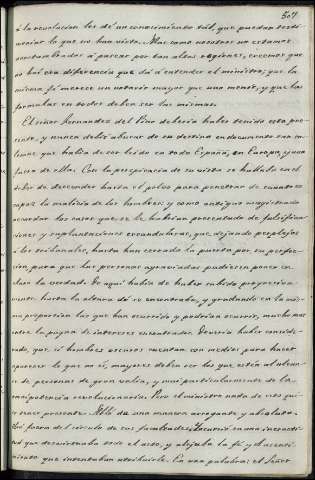 507
á la revolucion les dé un conocimiento tal, que puedan testi-
moniar lo que no han visto. Mas como nosotros no estamos
acostumbrados á pasear por tan altas regiones, creemos que
no hai esa diferencia que dá á entender el ministro; que la
misma fé merece un notario mayor que uno menor, y que las
formulas en todos deben ser las mismas.
El señor Fernandez del Pino deberia haber tenido esto pre-
sente, y nunca debió abusar de su destino en documento tan so-
lemne que habia de ser leido en toda España, en Europa, y aun
fuera de ella. Con la perspicacia de su vista se hallaba en el
deber de descender hasta el polvo para penetrar de cuanto es
capaz la malicia de los hombres; y como antiguo magistrado
acordar los casos que se le habrian presentado de falsifica-
ciones y suplantaciones escandalosas, que dejando perplejos
á los tribunales, hasta han cerrado la puerta por su perfec-
cion para que las personas agraviadas pudiesen poner en
claro la verdad. De aqui habia de haber subido proporcional-
mente hasta la altura dó se encontraba, y graduando en la mis-
ma proporcion las que han ocurrido y podrian ocurrir, mucho mas
entre la pugna de intereses encontrados. Deveria haber conside-
rado, que si hombres oscuros cuentan con medios para hacer
aparecer lo que no és, mayores deben ser los que están al alcan-
ce de personas de gran valia, y mui particularmente de la
omnipotencia revolucionaria. Pero el ministro nada de eso qui-
so tener presente. Obló de una manera arrogante y absoluta.
Salió fuera del círculo de sus facultades. Incurrió en una inexacti-
tud que desvirtuaba todo el acto, y alejaba la fé y el asenti-
miento que intentaban atribuirle. En una palabra: el Señor